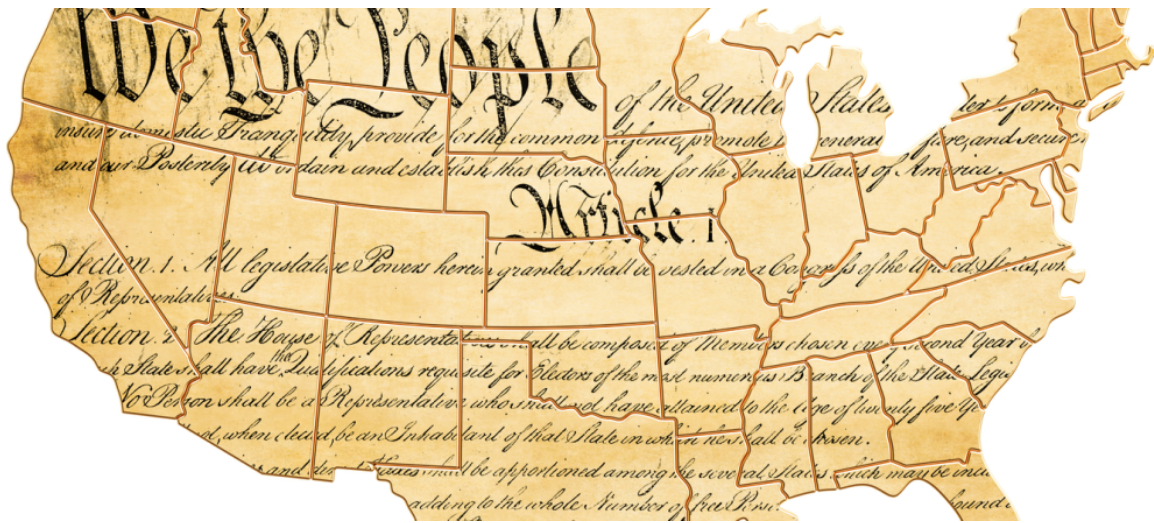 We the People
of the United States der to form a
insure domestic Tranquility, provide for the common defence, promote general fare, and secure
and our Posterity do ordain and establish this Constitution for the United States of America.
Article. I.
Section. 1. All legislative Powers herein granted shall be vested in a Congress of the United States, wh
of Representatives.
Section. 2. The House of Representatives shall be composed of Members chosen every second Year b
ch State shall have the Qualifications requisite for Electors of the most numerous Branch of the State Legis
No Person shall be a Representative who shall not have attained to the Age of twenty five Ye
d, when elected, be an Inhabitant of that State in which he shall be chosen.
and Taxes shall be apportioned among the several States which may be incl
adding to the whole Number of free Perso
bound